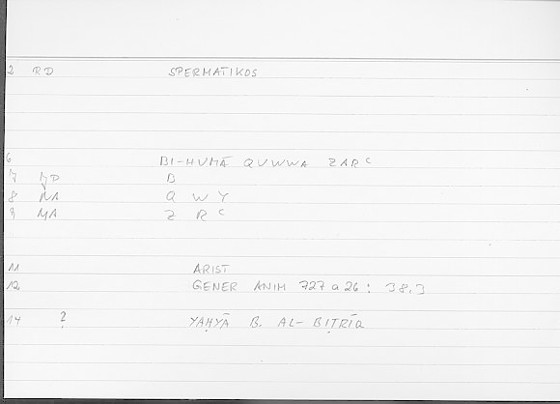 2 RD SPERMATIKOS
6 BI-HUMĀ QUWWA ZARᶜ
7 ỊD B
8 NA Q W Y
9 MA Z R ᶜ
11 ARIST
12 GENER ANIM 727a26: 38.3
14 ? YAḤYĀ B. AL-BIṬRĪQ